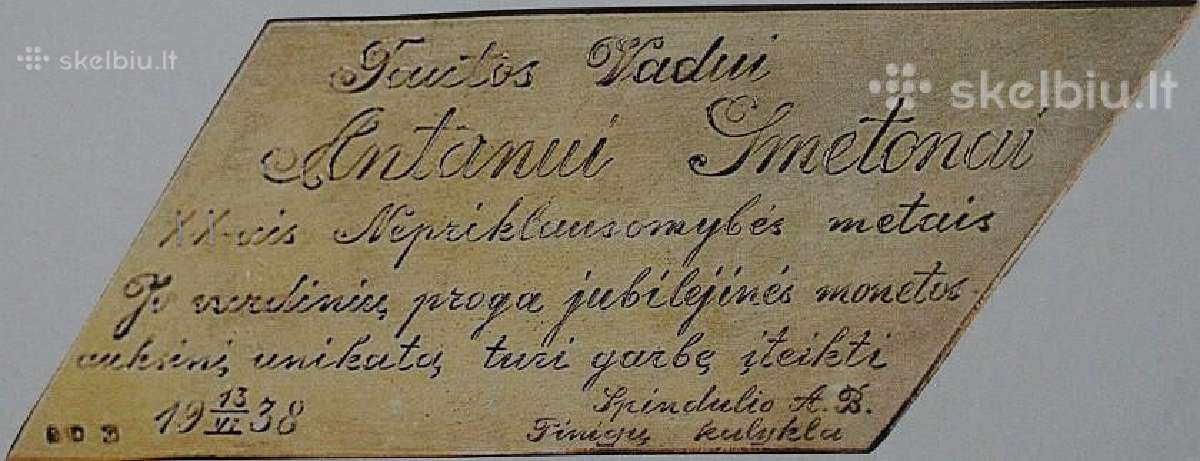 skelbiu.lt
skelbiu.lt
Tautos Vadui
Antanui Smetonai
XX-ais Nepriklausomybės metais
Jo vardinių proga jubilėjinės monetos
auksinį unikatą turi garbę įteikti
19 13/VI 38
Spindulio A. B.
Pinigų kalykla